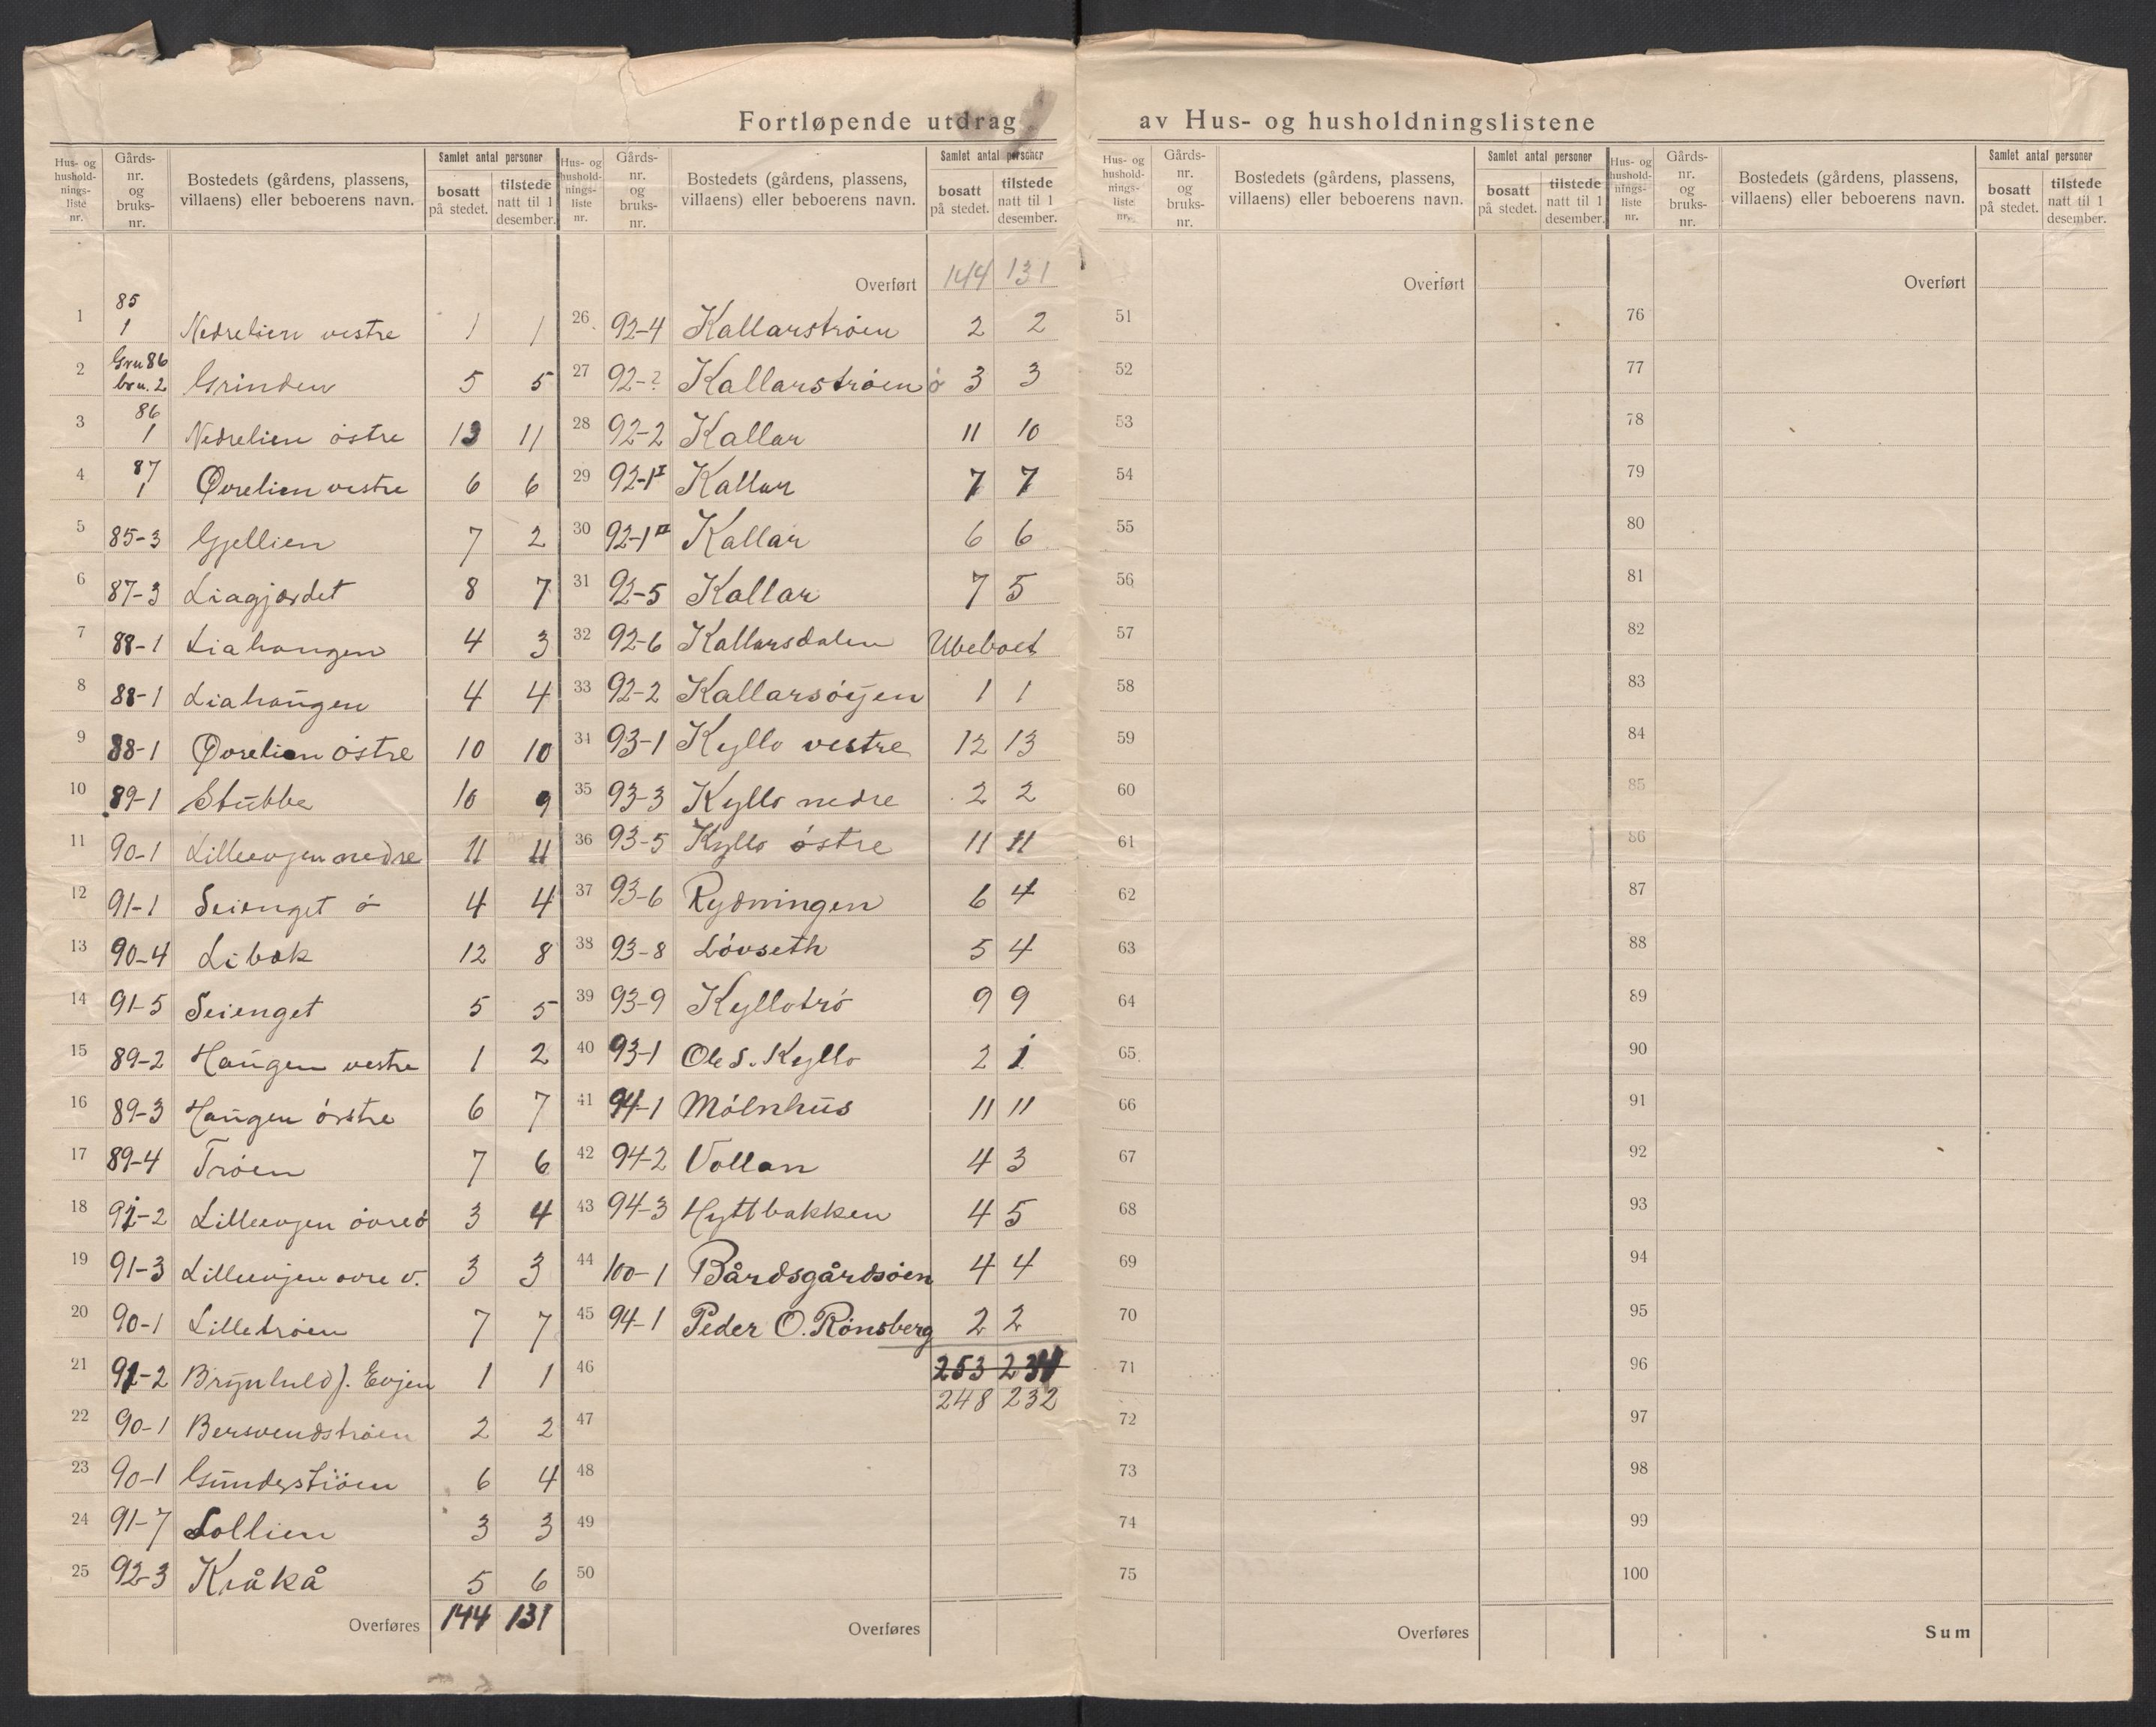 Fortløpende utdrag av Hus- og husholdningslistene
Hus- og hushold-nings-liste nr. Gårds-nr. og bruks-nr. Bostedets (gårdens, plassens, villaens) eller beboerens navn. Samlet antal personer bosatt på stedet. tilstede natt til 1 desember.
1 85 1 Nedrelien vestre 1 1
2 Gnr 86 brn. 2 Grinden 5 5
3 86 1 Nedrelien östre 13 11
4 87 1 Øvrelien vestre 6 6
5 85-3 Gjellien 7 2
6 87-3 Liagjærdet 8 7
7 88-1 Liahaugen 4 3
8 88-1 Liahaugen 4 4
9 88-1 Øvrelien östre 10 10
10 89-1 Stubbe 10 9
11 90-1 Lilleevjen nedre 11 11
12 91-1 Seienget ö 4 4
13 90-4 Libæk 12 8
14 91-5 Seienget 5 5
15 89-2 Haugen vestre 1 2
16 89-3 Haugen östre 6 7
17 89-4 Tröen 7 6
18 91-2 Lilleevjen övre ö 3 4
19 91-3 Lilleevjen övre v. 3 3
20 90-1 Lilletröen 7 7
21 91-2 Brynhild J. Evjen 1 1
22 90-1 Bersvendströen 2 2
23 90-1 Gunderströen 6 4
24 91-7 Sollien 3 3
25 92-3 Kråkå 5 6
Overføres 144 131
Hus- og hushold-nings-liste nr. Gårds-nr. og bruks-nr. Bostedets (gårdens, plassens, villaens) eller beboerens navn. Samlet antal personer bosatt på stedet. tilstede natt til 1 desember.
Overført 144 131
26 92-4 Kallarströen 2 2
27 92-? Kallarströen ö 3 3
28 92-2 Kallar 11 10
29 92-1 I Kallar 7 7
30 92-1 II Kallar 6 6
31 92-5 Kallar 7 5
32 92-6 Kallarsdalen Ubeboet
33 92-2 Kallarsöyen 1 1
34 93-1 Kyllo vestre 12 13
35 93-3 Kyllo nedre 2 2
36 93-5 Kyllo östre 11 11
37 93-6 Rydningen 6 4
38 93-8 Lövseth 5 4
39 93-9 Kyllotrö 9 9
40 93-1 Ole S. Kyllo 2 1
41 94-1 Mölnhus 11 11
42 94-2 Vollan 4 3
43 94-3 Hyttbakken 4 5
44 100-1 Bårdsgårdsöen 4 4
45 94-1 Peder O. Rönsberg 2 2
46 253 234
248 232
47
48
49
50
Overføres
Hus- og hushold-nings-liste nr. Gårds-nr. og bruks-nr. Bostedets (gårdens, plassens, villaens) eller beboerens navn. Samlet antal personer bosatt på stedet. tilstede natt til 1 desember.
Overført
51
52
53
54
55
56
57
58
59
60
61
62
63
64
65
66
67
68
69
70
71
72
73
74
75
Overføres
Hus- og hushold-nings-liste nr. Gårds-nr. og bruks-nr. Bostedets (gårdens, plassens, villaens) eller beboerens navn. Samlet antal personer bosatt på stedet. tilstede natt til 1 desember.
Overført
76
77
78
79
80
81
82
83
84
85
86
87
88
89
90
91
92
93
94
95
96
97
98
99
100
Sum